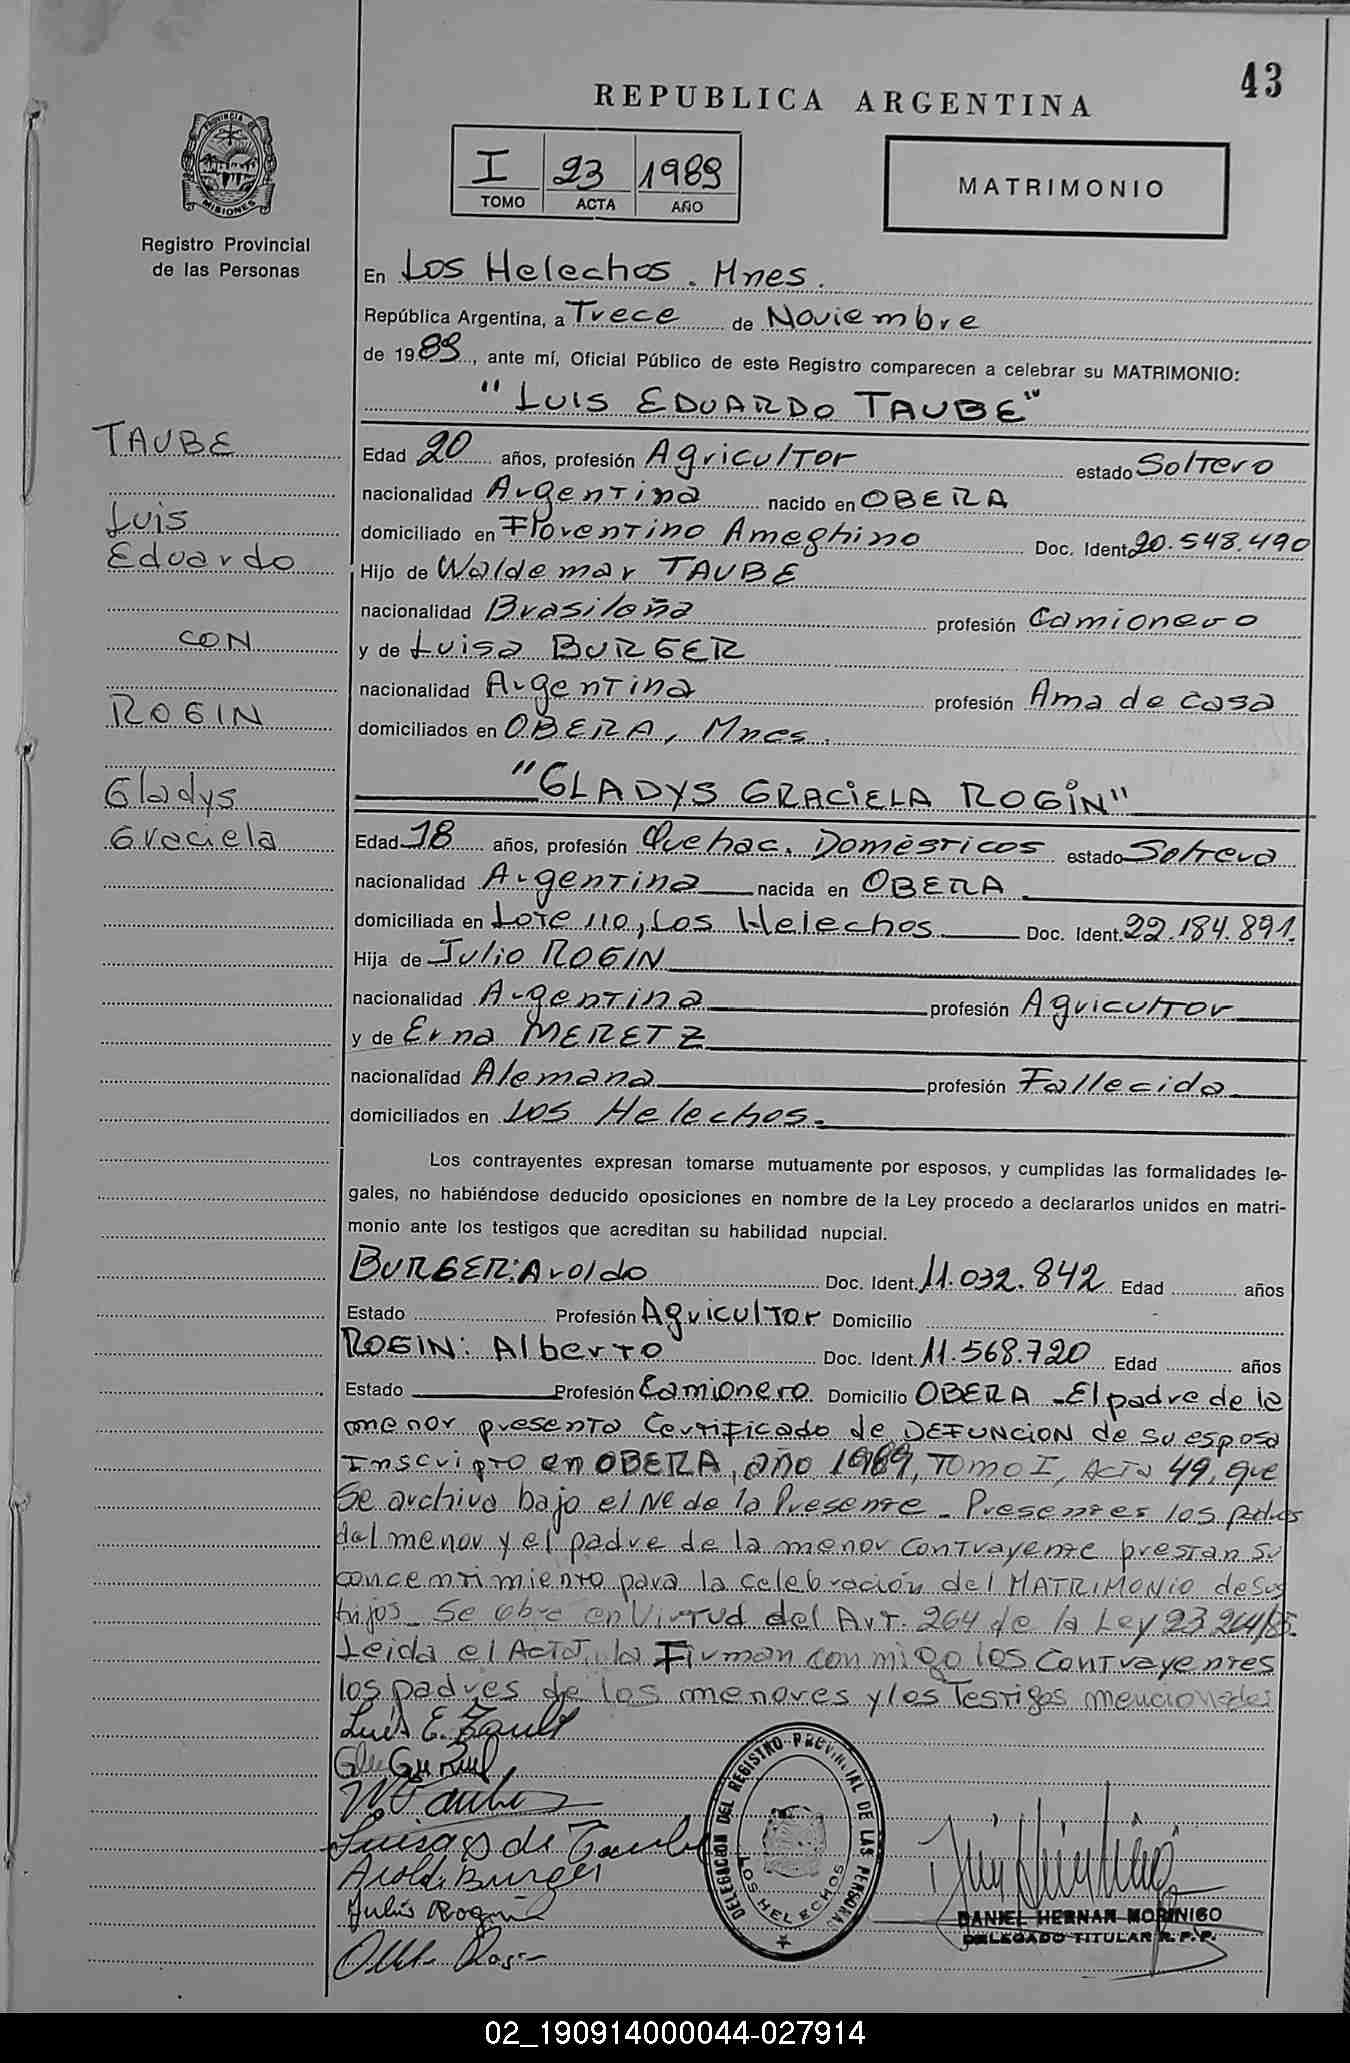 43
REPUBLICA ARGENTINA
I 23 1989
TOMO ACTA AÑO
MATRIMONIO
PROVINCIA DE
MISIONES
Registro Provincial
de las Personas
En Los Helechos. Mnes.
República Argentina, a Trece de Noviembre
de 1989, ante mí, Oficial Público de este Registro comparecen a celebrar su MATRIMONIO:
"LUIS EDUARDO TAUBE"
TAUBE
Luis
Eduardo
CON
ROGIN
Gladys
Graciela
Edad 20 años, profesión Agricultor estado Soltero
nacionalidad Argentina nacido en OBERA
domiciliado en Florentino Ameghino Doc. Ident. 20.548.490
Hijo de Waldemar TAUBE
nacionalidad Brasileña profesión Camionero
y de Luisa BURGER
nacionalidad Argentina profesión Ama de casa
domiciliados en OBERA, Mnes.
"GLADYS GRACIELA ROGIN"
Edad 18 años, profesión Quehac. Domésticos estado Soltera
nacionalidad Argentina nacida en OBERA
domiciliada en Lote 110, Los Helechos Doc. Ident. 22.184.891.
Hija de Julio ROGIN
nacionalidad Argentina profesión Agricultor
y de Erna MERETZ
nacionalidad Alemana profesión Fallecida
domiciliados en Los Helechos.
Los contrayentes expresan tomarse mutuamente por esposos, y cumplidas las formalidades le-
gales, no habiéndose deducido oposiciones en nombre de la Ley procedo a declararlos unidos en matri-
monio ante los testigos que acreditan su habilidad nupcial.
BURGER: Aroldo Doc. Ident. 11.032.842 Edad años
Estado Profesión Agricultor Domicilio
ROGIN: Alberto Doc. Ident. 11.568.720 Edad años
Estado Profesión Camionero Domicilio OBERA - El padre de la
menor presenta Certificado de DEFUNCION de su esposa
Inscripto en OBERA, año 1989, TOMO I, Acta 49, que
Se archiva bajo el Nº de la Presente - Presentes los padres
del menor y el padre de la menor contrayente prestan su
concentimiento para la celebración del MATRIMONIO de sus
hijos - Se obra en virtud del Art. 264 de la Ley 23.264/85.
Leida el Acta, la Firman conmigo los Contrayentes
los padres de los menores y los Testigos mencionados
Luis E. Taube
Luisa B de Taube
Aroldo Burger
Julio Rogin
DELEGACION DEL REGISTRO PROVINCIAL DE LAS PERSONAS
LOS HELECHOS
DANIEL HERNAN MORINIGO
DELEGADO TITULAR R.P.P.
02_190914000044-027914